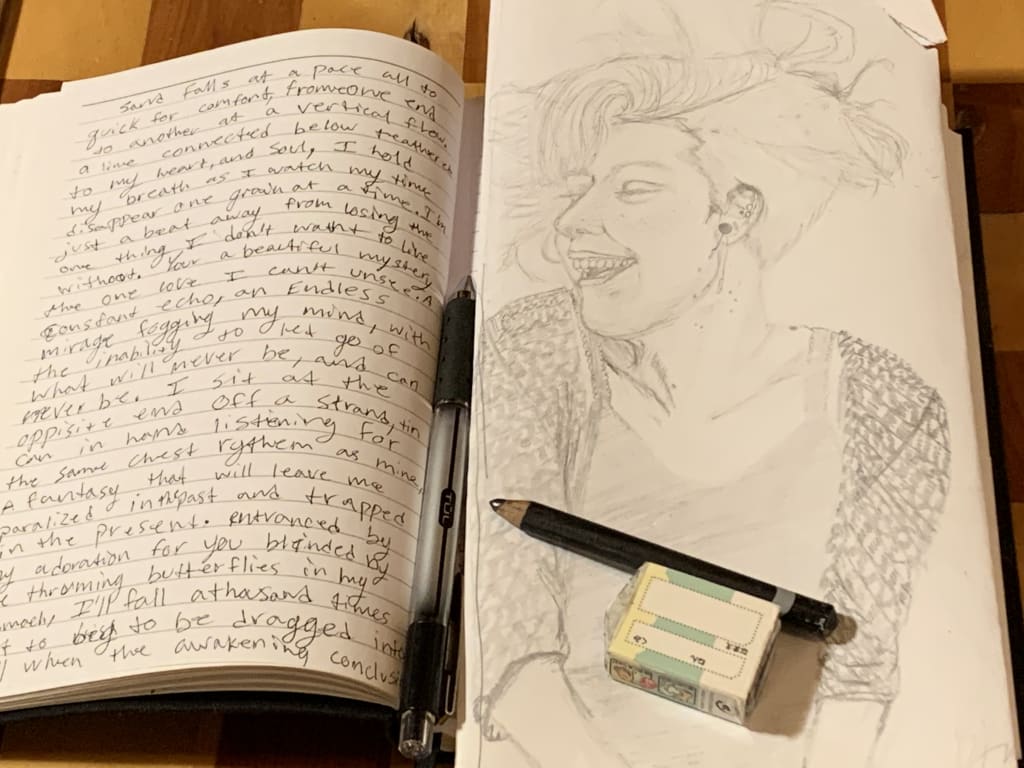 Sand falls at a pace all to
quick for comfort, from one end
to another at a vertical flow,
a time connected below teathered
to my heart, and soul, I hold
my breath as I watch my time
disappear one grain at a time. I'm
just a beat away from losing the
one thing I don't waht to live
without. Your a beautiful mystery
the one love I can't unsee. A
constant echo, an Endless
mirage fogging my mind, with
the inability to let go of
what will never be, and can
never be. I sit at the
oppisite end off a strand, tin
can in hand listening for
the same chest rythem as mine,
A fantasy that will leave me
paralized in the past and trapped
in the present. entranced by
adoration for you blinded by
throming butterflies in my
I'll fall a thasand times
to be dragged into
when the awakening conclusi
TUL